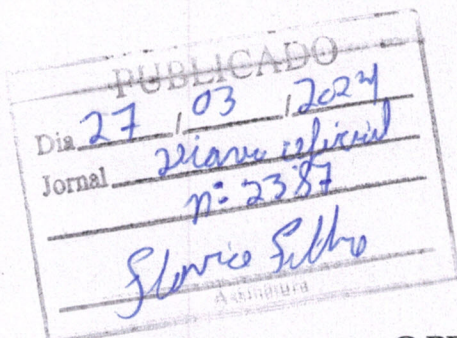 PUBLICADO
Dia 27 / 03 / 2024
Jornal Diario oficial
nº 2387
Assinatura